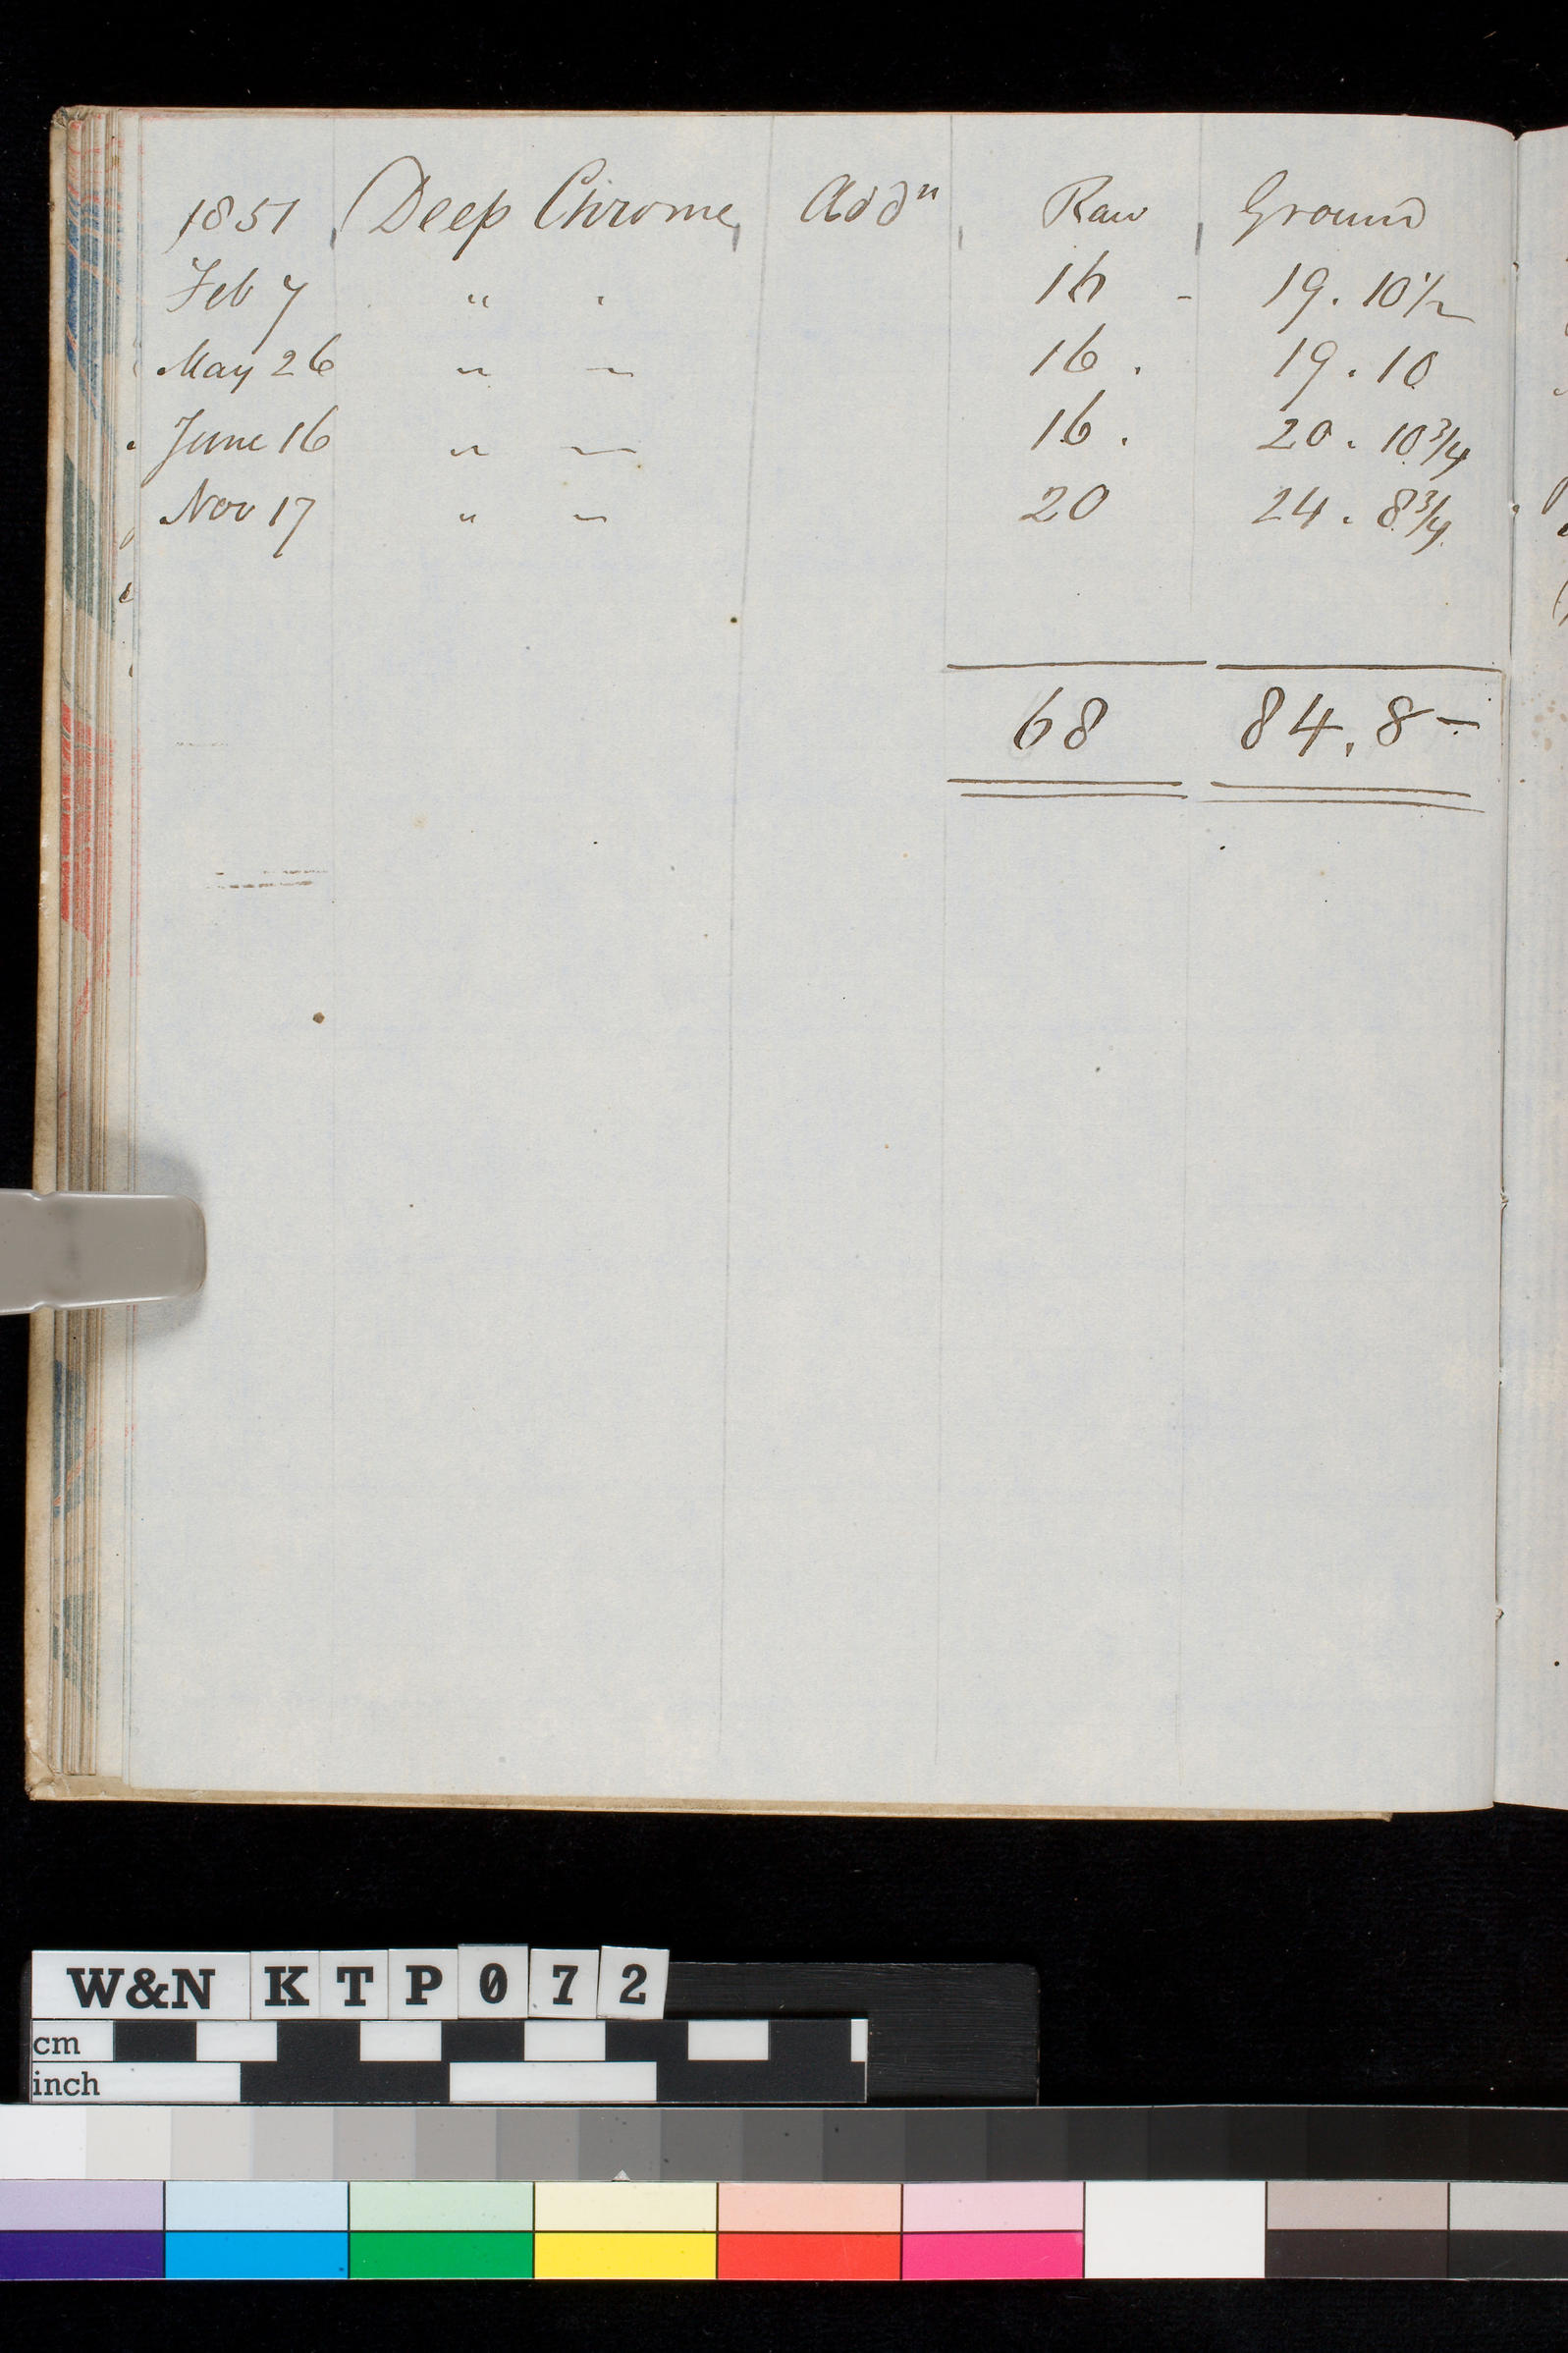 1851 Deep Chrome, Addⁿ Raw Ground
Feb 7 " " 16 - 19 . 10 1/2
May 26 " " 16 . 19 . 10
June 16 " " 16 . 20 . 10 3/4
Nov 17 " " 20 24 . 8 3/4
68 84 . 8 -
W&N KTP072
cm
inch